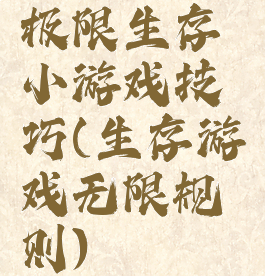 极限生存
小游戏技
巧(生存游
戏无限规
则)